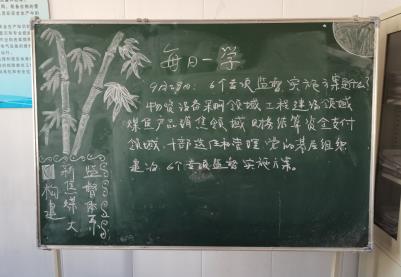 每日一学
9月28日: 6个专项监督实施方案是什么?
物资设备采购领域、工程建设领域
煤焦产品销售领域、财务结算资金支付
领域、干部选任和管理、党的基层组织
建设6个专项监督实施方案。
构建
利焦煤大
监督体系